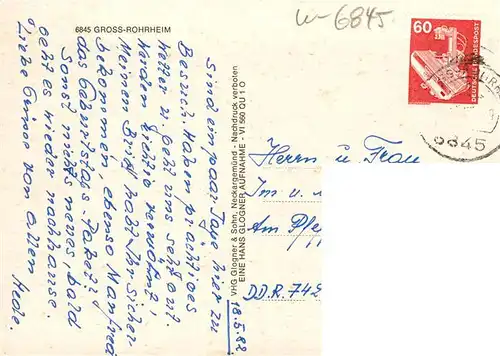 6845 GROSS-ROHRHEIM
w-6845
60
DEUTSCHE BUNDESPOST
6845
18.5.82
Sind ein paar Tage hier zu
Besuch. Haben prachtvolles
Wetter u. geht uns sehr gut.
Werden richtig verwöhnt.
Meinen Brief habt Ihr sicher
bekommen, ebenso Manfred
das Geburtstags Paket?
Sonst nichts neues, bald
geht es wieder nachhause.
Liebe Grüsse von allen
Hede.
VHG Glogner & Sohn, Neckargemünd - Nachdruck verboten
EINE HANS GLOGNER AUFNAHME - VI 560 QU 1 O
Herrn u Frau
Im. u.
Am Pfe
DDR. 742